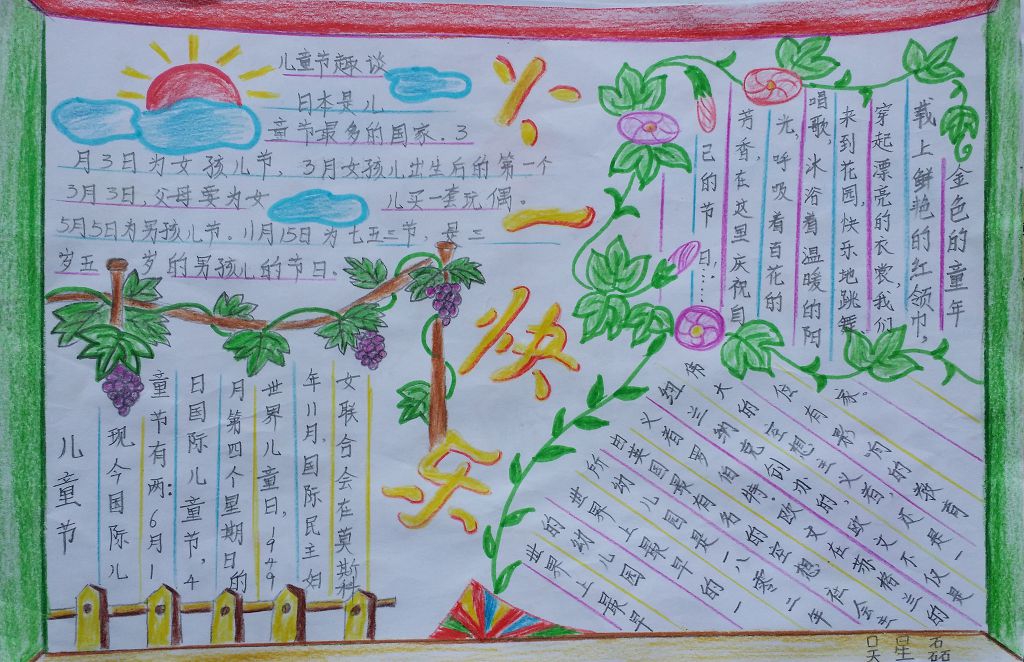 六一快乐
儿童节趣谈
日本是儿
童节最多的国家.3
月3日为女孩儿节,3月女孩儿出生后的第一个
3月3日,父母要为女儿买一套玩偶。
5月5日为男孩儿节。11月15日为七五三节 是三
岁五岁的男孩儿的节日。
儿童节
现今国际儿
童节有两:6月1
日国际儿童节,4
月第四个星期日的
世界儿童日,1949
年11月,国际民主妇
女联合会在莫斯科
金色的童年
载上鲜艳的红领巾,
穿起漂亮的衣裳,我们
来到花园,快乐地跳舞
唱歌,沐浴着温暖的阳
光,呼吸着百花的
芳香,在这里庆祝自
己的节日……
世界上最早
的幼儿园
世界上最早的一
所幼儿园是一八零二年
由英国最有名的空想社会主
义者罗伯特.欧文在苏格兰的
纽兰纳克创办的,欧文不仅是
伟大的空想主义者,还是一
位有影响的教育
家。
吴星磊